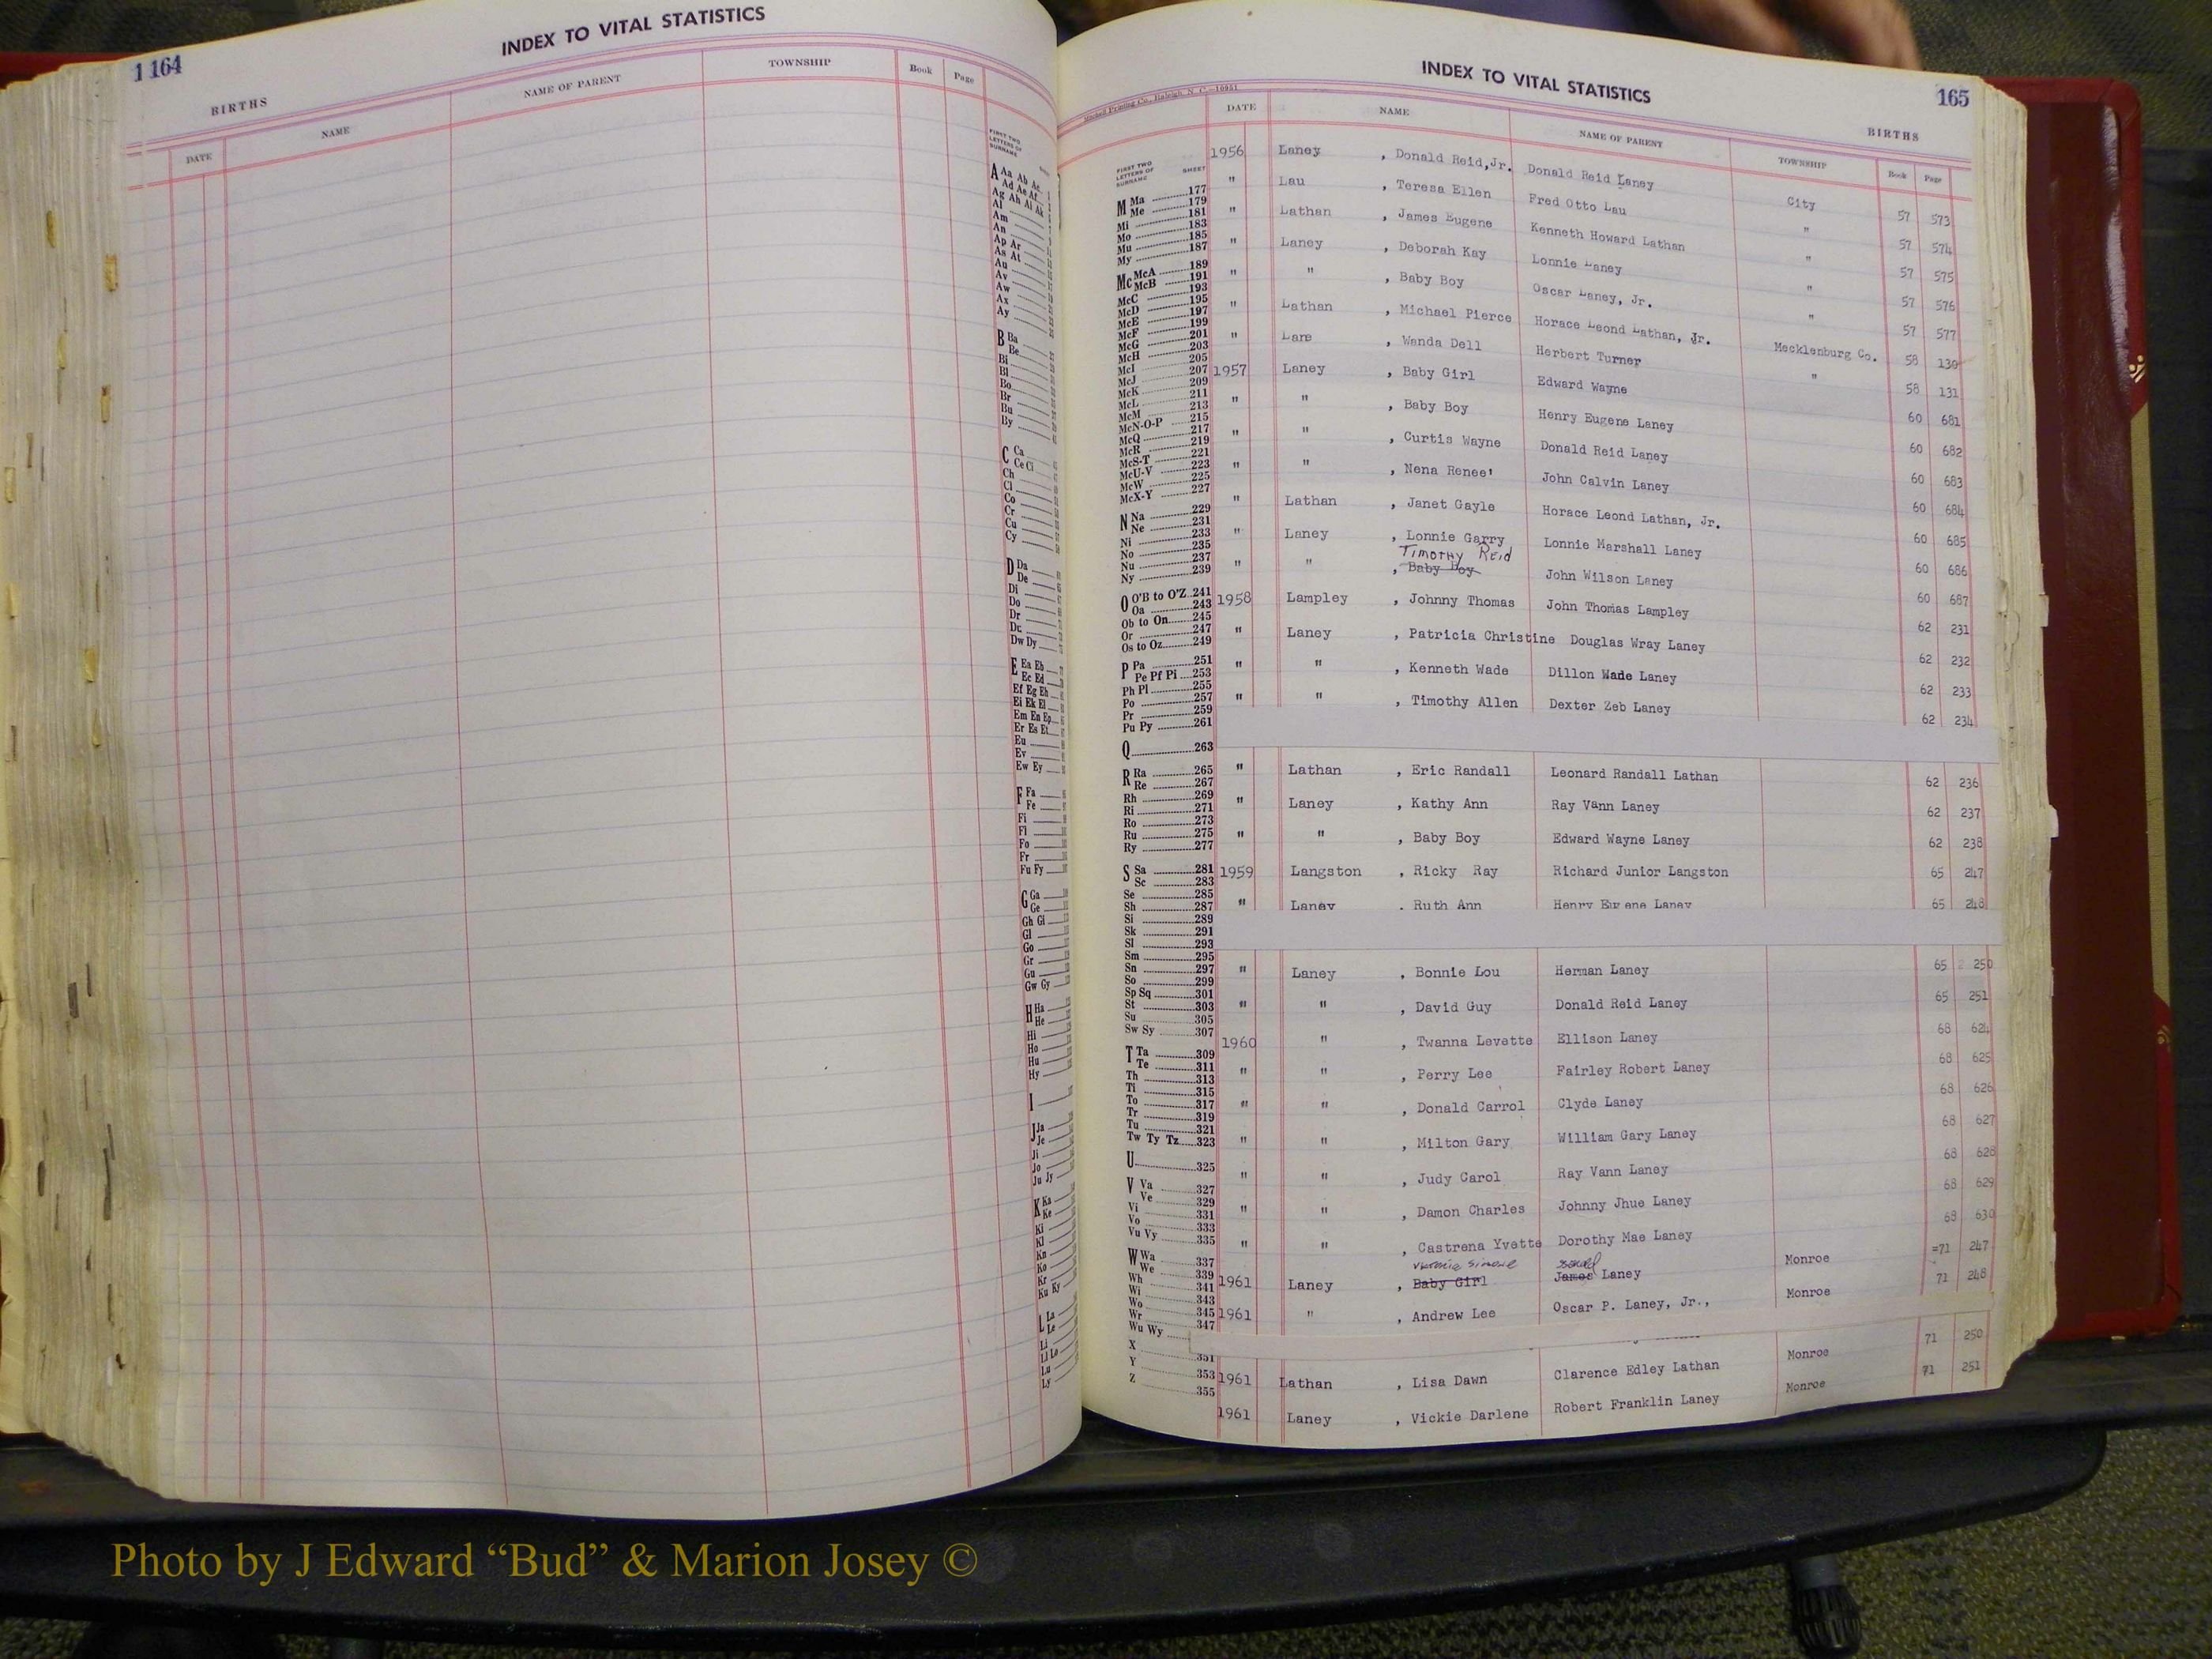 INDEX TO VITAL STATISTICS
1 164
BIRTHS
DATE NAME NAME OF PARENT TOWNSHIP Book Page
FIRST TWO LETTERS OF SURNAME
A Aa Ab Ac
Ad Ae Af
Ag Ah Ai Ak
Al
Am
An
Ap Ar
As At
Au
Av
Aw
Ax
Ay
B Ba
Be
Bi
Bl
Bo
Br
Bu
By
C Ca
Ce Ci
Ch
Cl
Co
Cr
Cu
Cy
D Da
De
Di
Do
Dr
Du
Dw Dy
E Ea Eb
Ec Ed
Ef Eg Eh
Ei Ek El
Em En Ep
Er Es Et
Eu
Ev
Ew Ey
F Fa
Fe
Fi
Fl
Fo
Fr
Fu Fy
G Ga
Ge
Gh Gi
Gl
Go
Gr
Gu
Gw Gy
H Ha
He
Hi
Ho
Hu
Hy
I
J Ja
Je
Ji
Jo
Ju Jy
K Ka
Ke
Ki
Kl
Kn
Ko
Kr
Ku Ky
L La
Le
Li
Ll Lo
Lu
Ly
INDEX TO VITAL STATISTICS
165
Mitchell Printing Co., Raleigh, N. C.—16951
BIRTHS
DATE NAME NAME OF PARENT TOWNSHIP Book Page
FIRST TWO LETTERS OF SURNAME SHEET
M Ma 177
Me 179
Mi 181
Mo 183
Mu 185
My 187
Mc McA 189
McB 191
McC 193
McD 195
McE 197
McF 199
McG 201
McH 203
McI 205
McJ 207
McK 209
McL 211
McM 213
McN-O-P 215
McQ 217
McR 219
McS-T 221
McU-V 223
McW 225
McX-Y 227
N Na 229
Ne 231
Ni 233
No 235
Nu 237
Ny 239
O O'B to O'Z 241
Oa 243
Ob to On 245
Or 247
Os to Oz 249
P Pa 251
Pe Pf Pi 253
Ph Pl 255
Po 257
Pr 259
Pu Py 261
Q 263
R Ra 265
Re 267
Rh 269
Ri 271
Ro 273
Ru 275
Ry 277
S Sa 281
Sc 283
Se 285
Sh 287
Si 289
Sk 291
Sl 293
Sm 295
Sn 297
So 299
Sp Sq 301
St 303
Su 305
Sw Sy 307
T Ta 309
Te 311
Th 313
Ti 315
To 317
Tr 319
Tu 321
Tw Ty Tz 323
U 325
V Va 327
Ve 329
Vi 331
Vo 333
Vu Vy 335
W Wa 337
We 339
Wh 341
Wi 343
Wo 345
Wr 347
Wu Wy
X 351
Y 353
Z 355
1956 Laney , Donald Reid,Jr. Donald Reid Laney City 57 573
" Lau , Teresa Ellen Fred Otto Lau " 57 574
" Lathan , James Eugene Kenneth Howard Lathan " 57 575
" Laney , Deborah Kay Lonnie Laney " 57 576
" " , Baby Boy Oscar Laney, Jr. " 57 577
" Lathan , Michael Pierce Horace Leond Lathan, Jr. Mecklenburg Co. 58 130
" Lare , Wanda Dell Herbert Turner " 58 131
1957 Laney , Baby Girl Edward Wayne 60 681
" " , Baby Boy Henry Eugene Laney 60 682
" " , Curtis Wayne Donald Reid Laney 60 683
" " , Nena Renee' John Calvin Laney 60 684
" Lathan , Janet Gayle Horace Leond Lathan, Jr. 60 685
" Laney , Lonnie Garry Lonnie Marshall Laney 60 686
Timothy Reid
" " , Baby Boy John Wilson Laney 60 687
1958 Lampley , Johnny Thomas John Thomas Lampley 62 231
" Laney , Patricia Christine Douglas Wray Laney 62 232
" " , Kenneth Wade Dillon Wade Laney 62 233
" " , Timothy Allen Dexter Zeb Laney 62 234
" Lathan , Eric Randall Leonard Randall Lathan 62 236
" Laney , Kathy Ann Ray Vann Laney 62 237
" " , Baby Boy Edward Wayne Laney 62 238
1959 Langston , Ricky Ray Richard Junior Langston 65 247
" Laney , Ruth Ann Henry Eugene Laney 65 248
" Laney , Bonnie Lou Herman Laney 65 250
" " , David Guy Donald Reid Laney 65 251
1960 " , Twanna Levette Ellison Laney 68 624
" " , Perry Lee Fairley Robert Laney 68 625
" " , Donald Carrol Clyde Laney 68 626
" " , Milton Gary William Gary Laney 68 627
" " , Judy Carol Ray Vann Laney 68 628
" " , Damon Charles Johnny Jhue Laney 68 629
" " , Castrena Yvette Dorothy Mae Laney 68 630
1961 Laney , Baby Girl James Laney Monroe =71 247
1961 " , Andrew Lee Oscar P. Laney, Jr., Monroe 71 248
1961 Lathan , Lisa Dawn Clarence Edley Lathan Monroe 71 250
1961 Laney , Vickie Darlene Robert Franklin Laney Monroe 71 251
Photo by J Edward “Bud” & Marion Josey ©